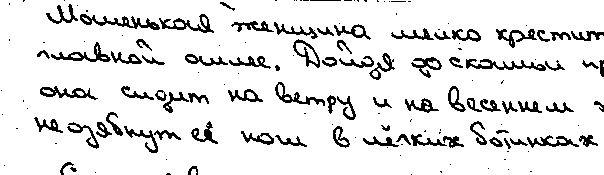 Маленькая женщина мелко крестит
главной аллее. Дойдя до скамьи пр
она сидит на ветру и на весеннем х
не озябнут её ноги в лёгких ботинках